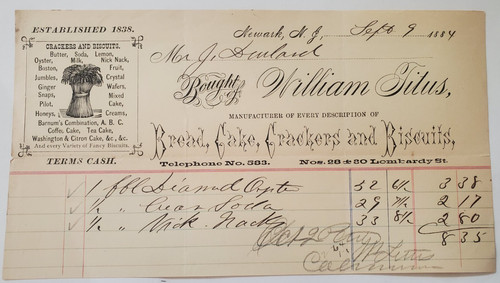 ESTABLISHED 1838.
CRACKERS AND BISCUITS.
Butter, Soda, Lemon,
Oyster, Milk, Nick Nack,
Boston, Fruit,
Jumbles, Crystal
Ginger Wafers,
Snaps, Mixed
Pilot, Cake,
Honeys, Creams,
Barnum's Combination, A. B. C.
Coffee Cake, Tea Cake,
Washington & Citron Cake, &c., &c.
And every Variety of Fancy Biscuits.
TERMS CASH.
Newark, N. J., Sept 9 1884
Mr J.
Bought of William Titus,
MANUFACTURER OF EVERY DESCRIPTION OF
Bread, Cake, Crackers and Biscuits,
Telephone No. 583. Nos. 28 & 30 Lombardy St.
1 bbl Diamond Oyster 52 6½ 3 38
½ " Cream Soda 29 7½ 2 17
½ " Nick Nacks 33 8½ 2 80
8 35
Oct 2
Wm Titus